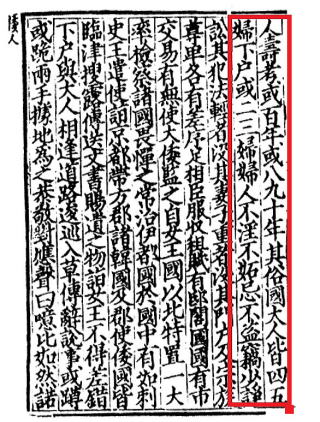 人壽考或百年或八九十年其俗國大人皆四五
婦下戶或二三婦婦人不淫不妬忌不盜竊少諍
訟其犯法輕者沒其妻子重者沒其門戶及宗族
尊卑各有差序足相臣服收租賦有邸閣國國有市
交易有無使大倭監之自女王國以北特置一大
率檢察諸國畏憚之常治伊都國於國中有如刺
史王遣使詣京都帶方郡諸韓國及郡使倭國皆
臨津搜露傳送文書賜遺之物詣女王不得差錯
下戶與大人相逢道路逡巡入草傳辭說事或蹲
或跪兩手據地為之恭敬對應聲曰噫比如然諾
倭人